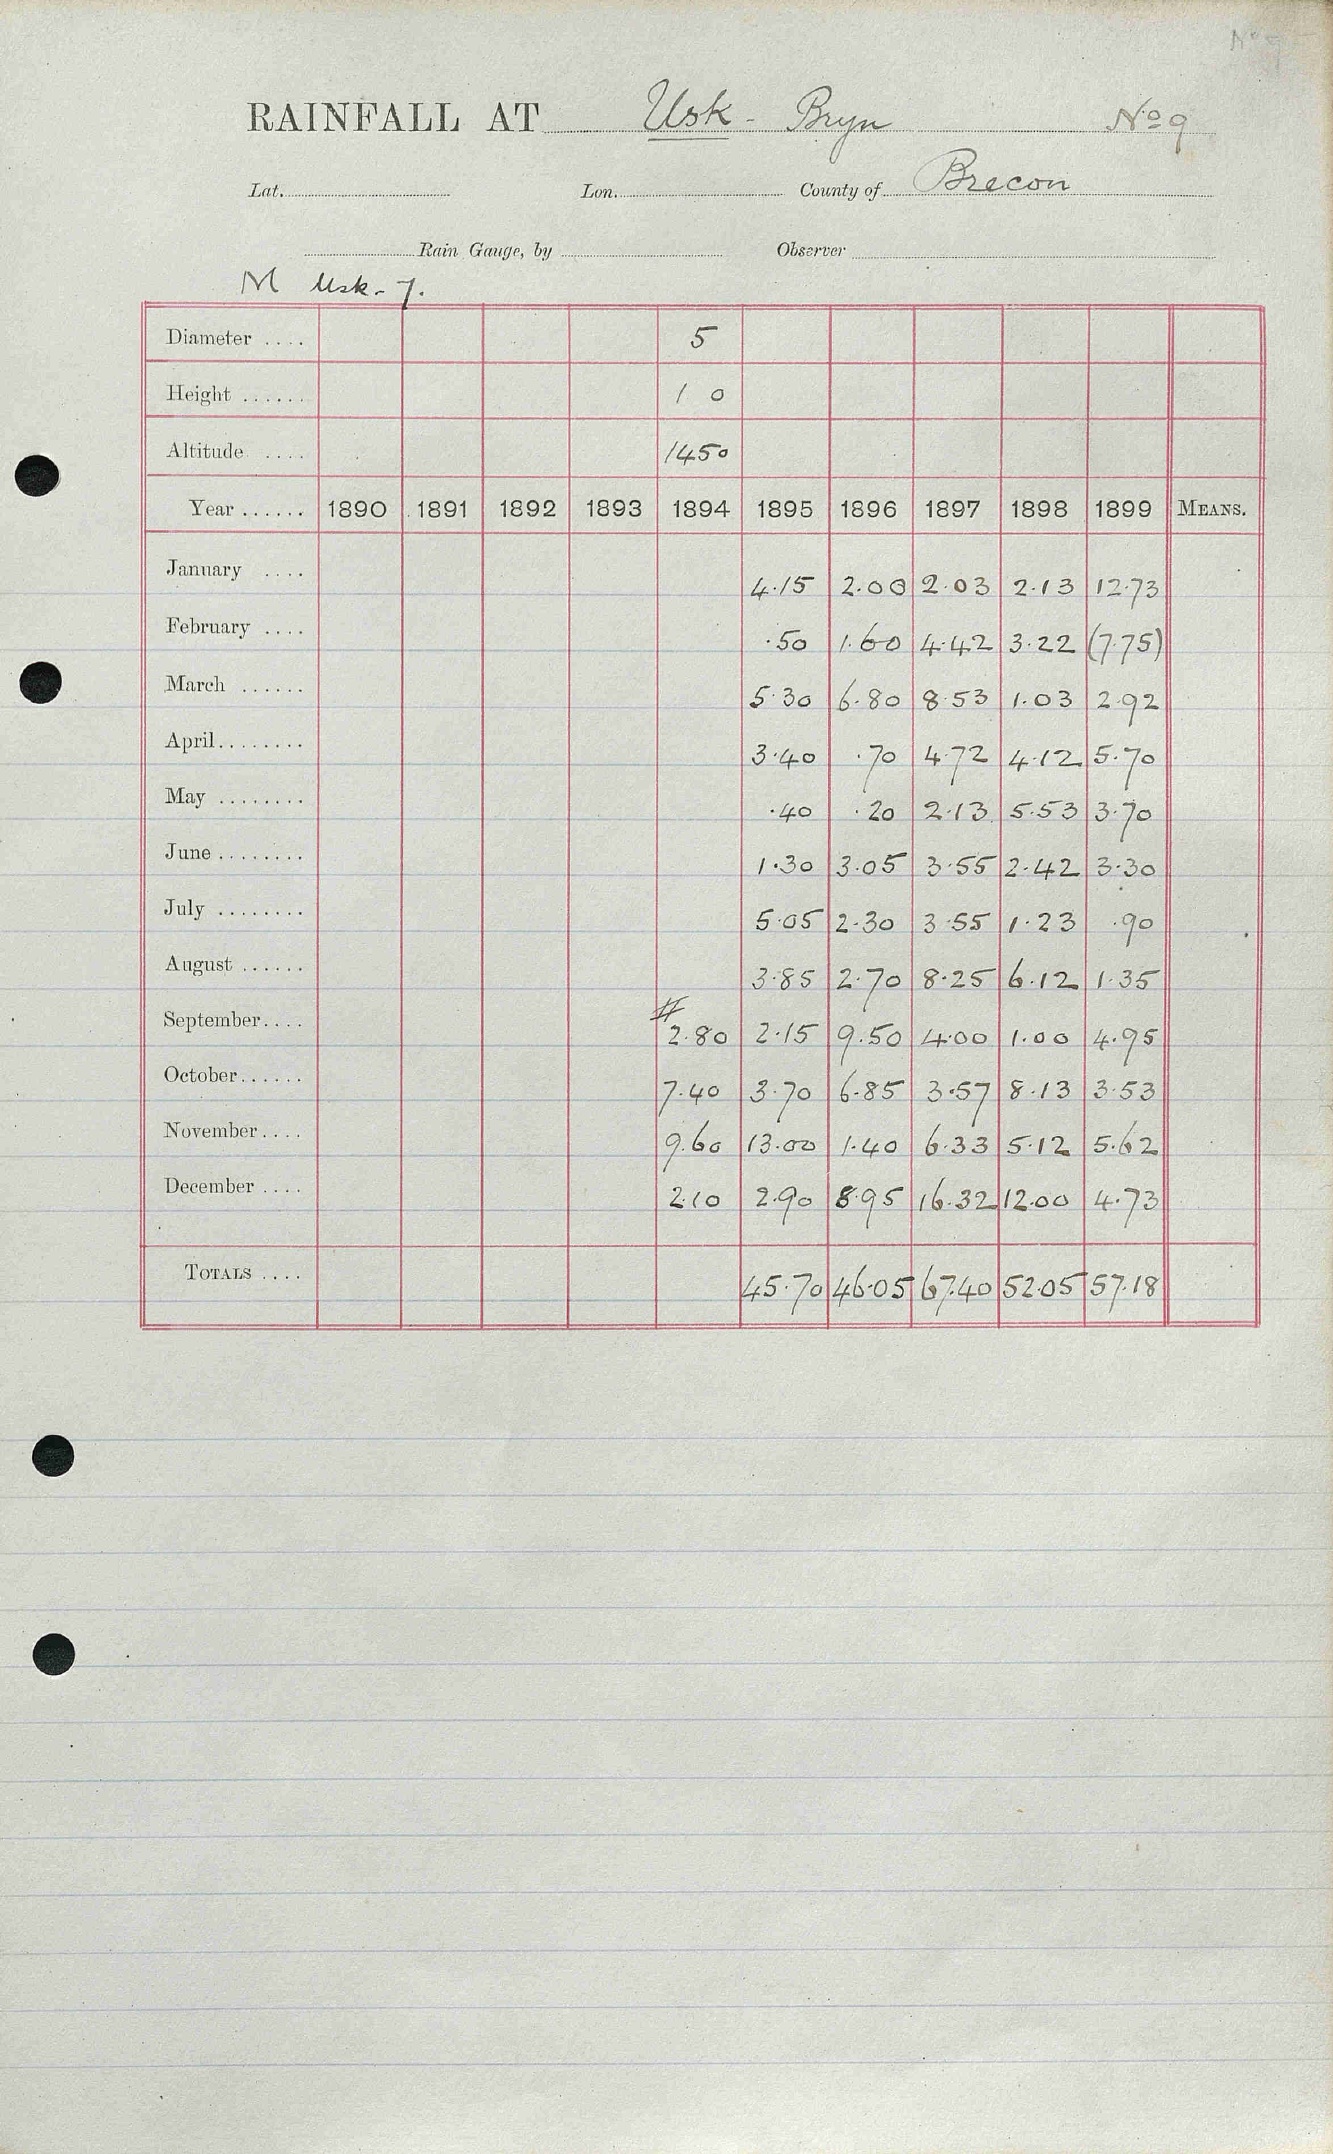 No 9
RAINFALL AT Usk - Bryn No 9
Lat. Lon. County of Brecon
Rain Gauge, by Observer
M Usk - 7.
Diameter .... 5
Height ...... 1 0
Altitude .... 1450
Year ...... 1890 1891 1892 1893 1894 1895 1896 1897 1898 1899 MEANS.
January .... 4.15 2.00 2.03 2.13 12.73
February .... .50 1.60 4.42 3.22 (7.75)
March ...... 5.30 6.80 8.53 1.03 2.92
April........ 3.40 .70 4.72 4.12 5.70
May ........ .40 .20 2.13 5.53 3.70
June ........ 1.30 3.05 3.55 2.42 3.30
July ........ 5.05 2.30 3.55 1.23 .90
August ...... 3.85 2.70 8.25 6.12 1.35
September.... # 2.80 2.15 9.50 4.00 1.00 4.95
October...... 7.40 3.70 6.85 3.57 8.13 3.53
November.... 9.60 13.00 1.40 6.33 5.12 5.62
December .... 2.10 2.90 8.95 16.32 12.00 4.73
TOTALS .... 45.70 46.05 67.40 52.05 57.18